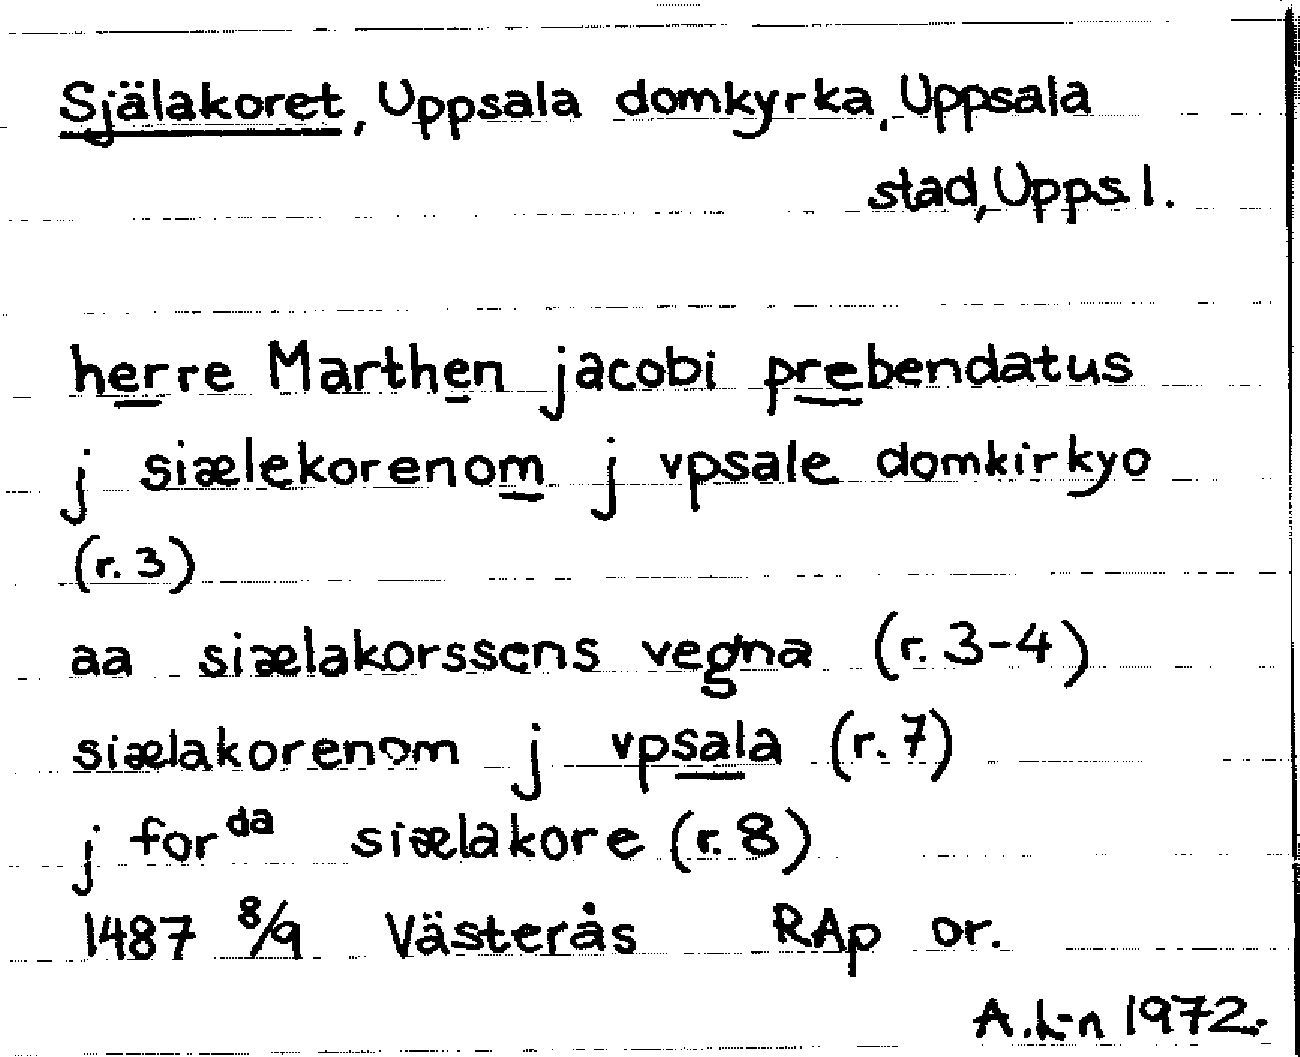 Själakoret, Uppsala domkyrka, Uppsala
stad, Upps. l.
herre Marthen jacobi prebendatus
j siælekorenom j vpsale domkirkyo
(r. 3)
aa siælakorssens vegna (r. 3-4)
siælakorenom j vpsala (r. 7)
j forda siælakore (r. 8)
1487 8/9 Västerås RAp or.
A. L-n 1972.